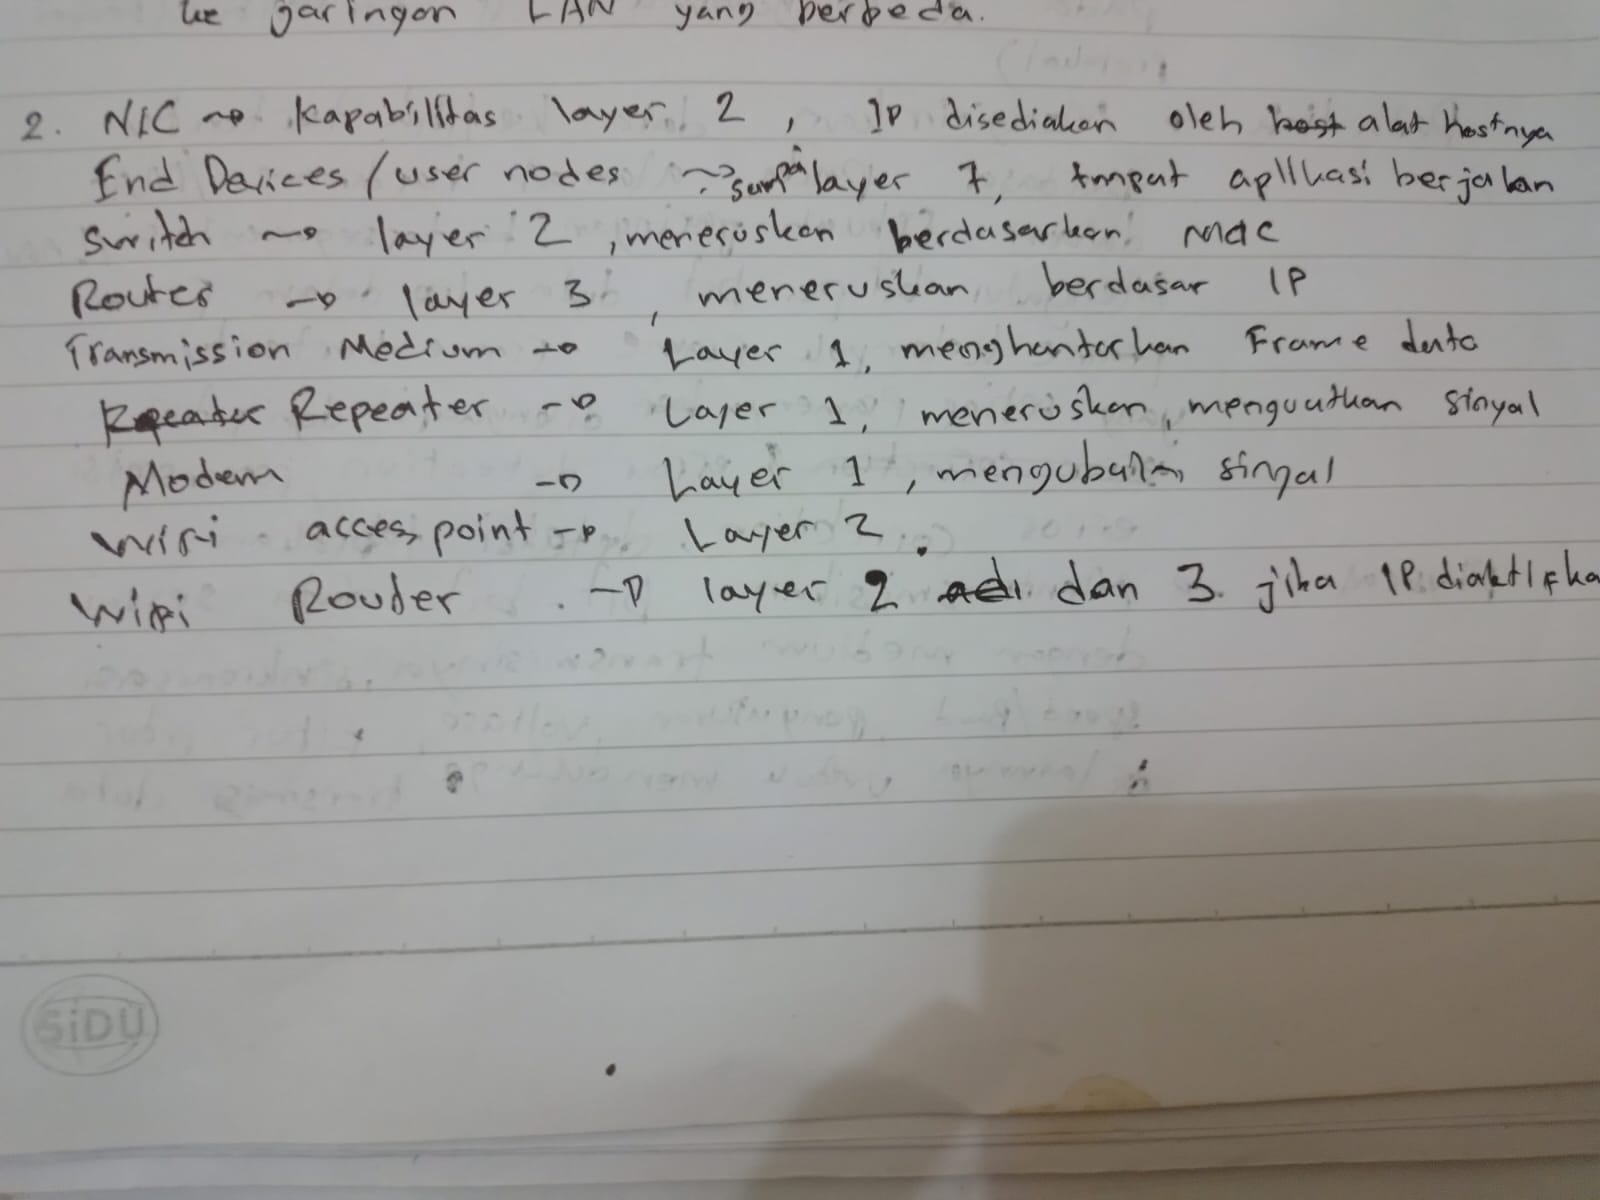 ke jaringan LAN yang berbeda.
2. NIC → kapabilitas layer 2, IP disediakan oleh host alat hostnya
End Devices / user nodes → sampai layer 7, tmpat aplikasi berjalan
Switch → layer 2, meneruskan berdasarkan MAC
Router → layer 3, meneruskan berdasar IP
Transmission Medium → Layer 1, menghantarkan Frame data
Repeater Repeater → Layer 1, meneruskan, menguatkan sinyal
Modem → Layer 1, mengubah sinyal
Wifi acces point → Layer 2.
Wifi Router → layer 2 adi dan 3 jika IP diaktifka
SiDU